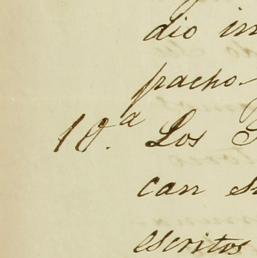 dio in
pacho.
18.ª Los
can s
escritos